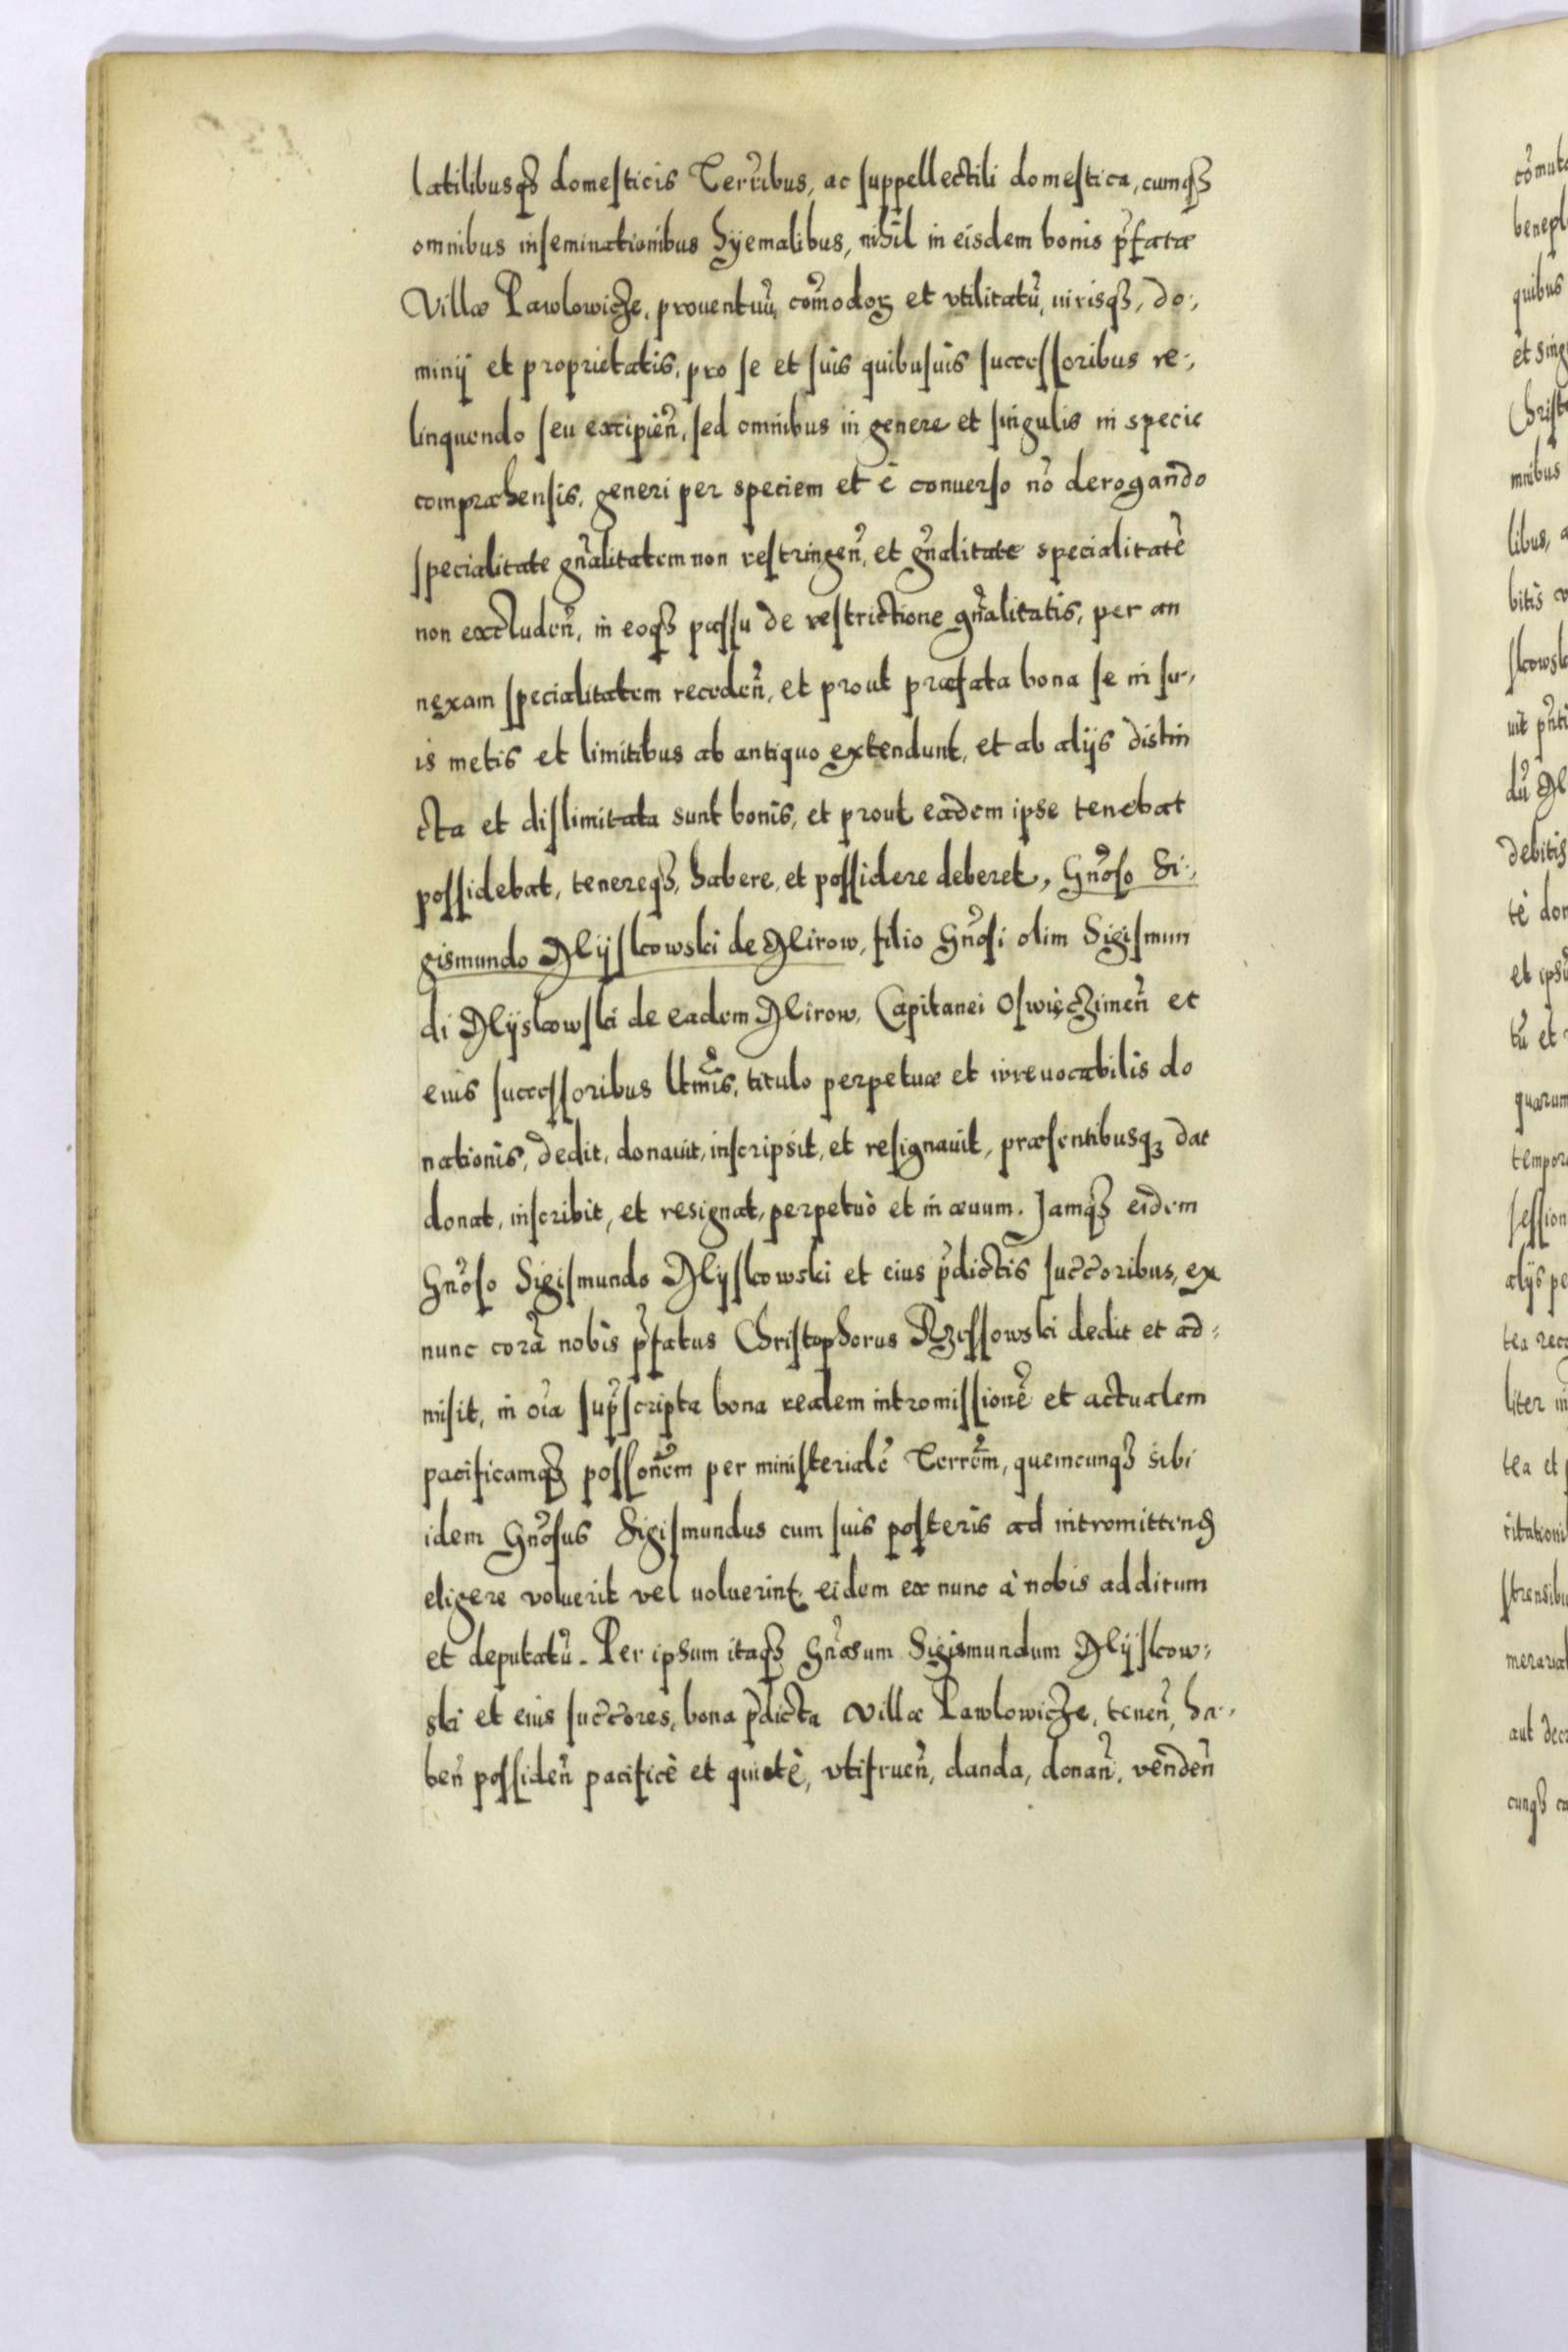 latilibusq₃ domesticis Terr̃ibus, ac suppellectili domestica, cumq₃
omnibus inseminationibus hÿemalibus, nihil in eisdem bonis p̃fatæ
Villæ Pawlowicze, prouentuũ, com̃odoꝝ et vtilitatũ, iurisq₃, do-,
minÿ et proprietatis, pro se et suis quibusuis successoribus re-,
linquendo seu excipien̄, sed omnibus in genere et singulis in specie
compræhensis, generi per speciem et è conuerso nō derogando
specialitate gn̄alitatem non restringen̄, et gn̄alitate specialitatē
non excluden̄, in eoq₃ passu de restrictione gn̄alitatis, per an
nexam specialitatem receden̄, et prout præfata bona se in su-,
is metis et limitibus ab antiquo extendunt, et ab alÿs distin
cta et dislimitata sunt bonis, et prout eadem ipse tenebat
possidebat, tenereq₃, habere, et possidere deberet, Gn̄oso Si-,
gismundo Mÿskowski de Mirow, filio Gn̄osi olim Sigismun
di Mÿskowski de eadem Mirow, Capitanei Oswięczimen̄ et
eius successoribus ltm̄is, titulo perpetuæ et irreuocabilis do
nationis, dedit, donauit, inscripsit, et resignauit, præsentibusq₃ dat
donat, inscribit, et resignat, perpetuò et in æuum. Jamq₃ eidem
Gn̄oso Sigismundo Mÿskowski et eius p̃dictis succ̄oribus, ex
nunc corā nobis p̃fatus Christophorus Rzessowski dedit et ad-
misit, in oīa sup̃scripta bona realem intromissionē et actualem
pacificamq₃ possōnem per ministerialē Terrēm, quemcunq₃ sibi
idem Gn̄osus Sigismundus cum suis posteris ad intromittenꝺ
eligere voluerit vel uoluerint, eidem ex nunc à nobis additum
et deputatū. Per ipsum itaq₃ Gn̄osum Sigismundum Mÿskow-
ski et eius succ̄ores, bona p̃dicta Villæ Pawlowicze, tenen̄, ha-,
ben̄ possiden̄ pacificè et quietè, vtifruen̄, danda, donan̄, venden̄